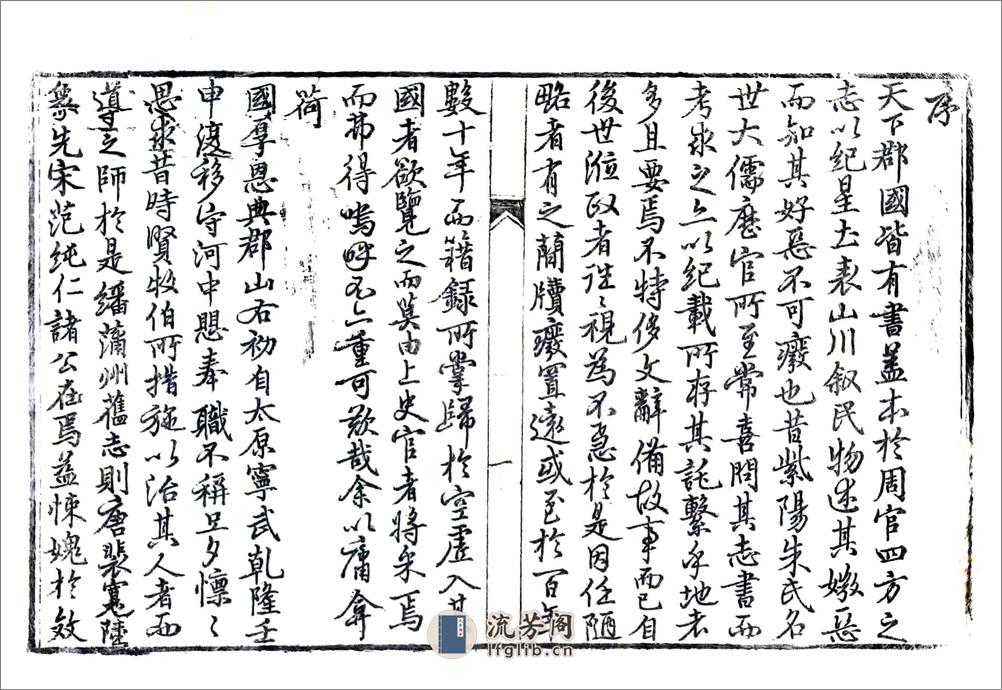 序
天下郡國皆有書蓋本於周官四方之
志以紀星土表山川叙民物述其媺惡
而知其好惡不可癈也昔紫陽朱氏名
世大儒歷官所至常喜問其志書而
考求之亦以紀載所存其託繫乎地者
多且要焉不特侈文辭備故事而已自
後世涖政者往〻視為不急於是因任陋
略者有之蕳牘癈置遠或至於一百年
數十年而籍錄所掌歸於空虛入其
國者欲覽之而莫由上史官者將采焉
而弗得嗚呼不亦重可歎哉余以庸侖
荷
國厚恩典郡山右初自太原寧武乾隆壬
申濅移守河中恩奉職不稱旦夕懔〻
思求昔時賢牧伯所措施以治其人者而
導之師於是繙蒲州舊志則唐裴寬陸
象先宋范純仁諸公在焉益悚媿於效
一
流芳阁
lfglib.cn